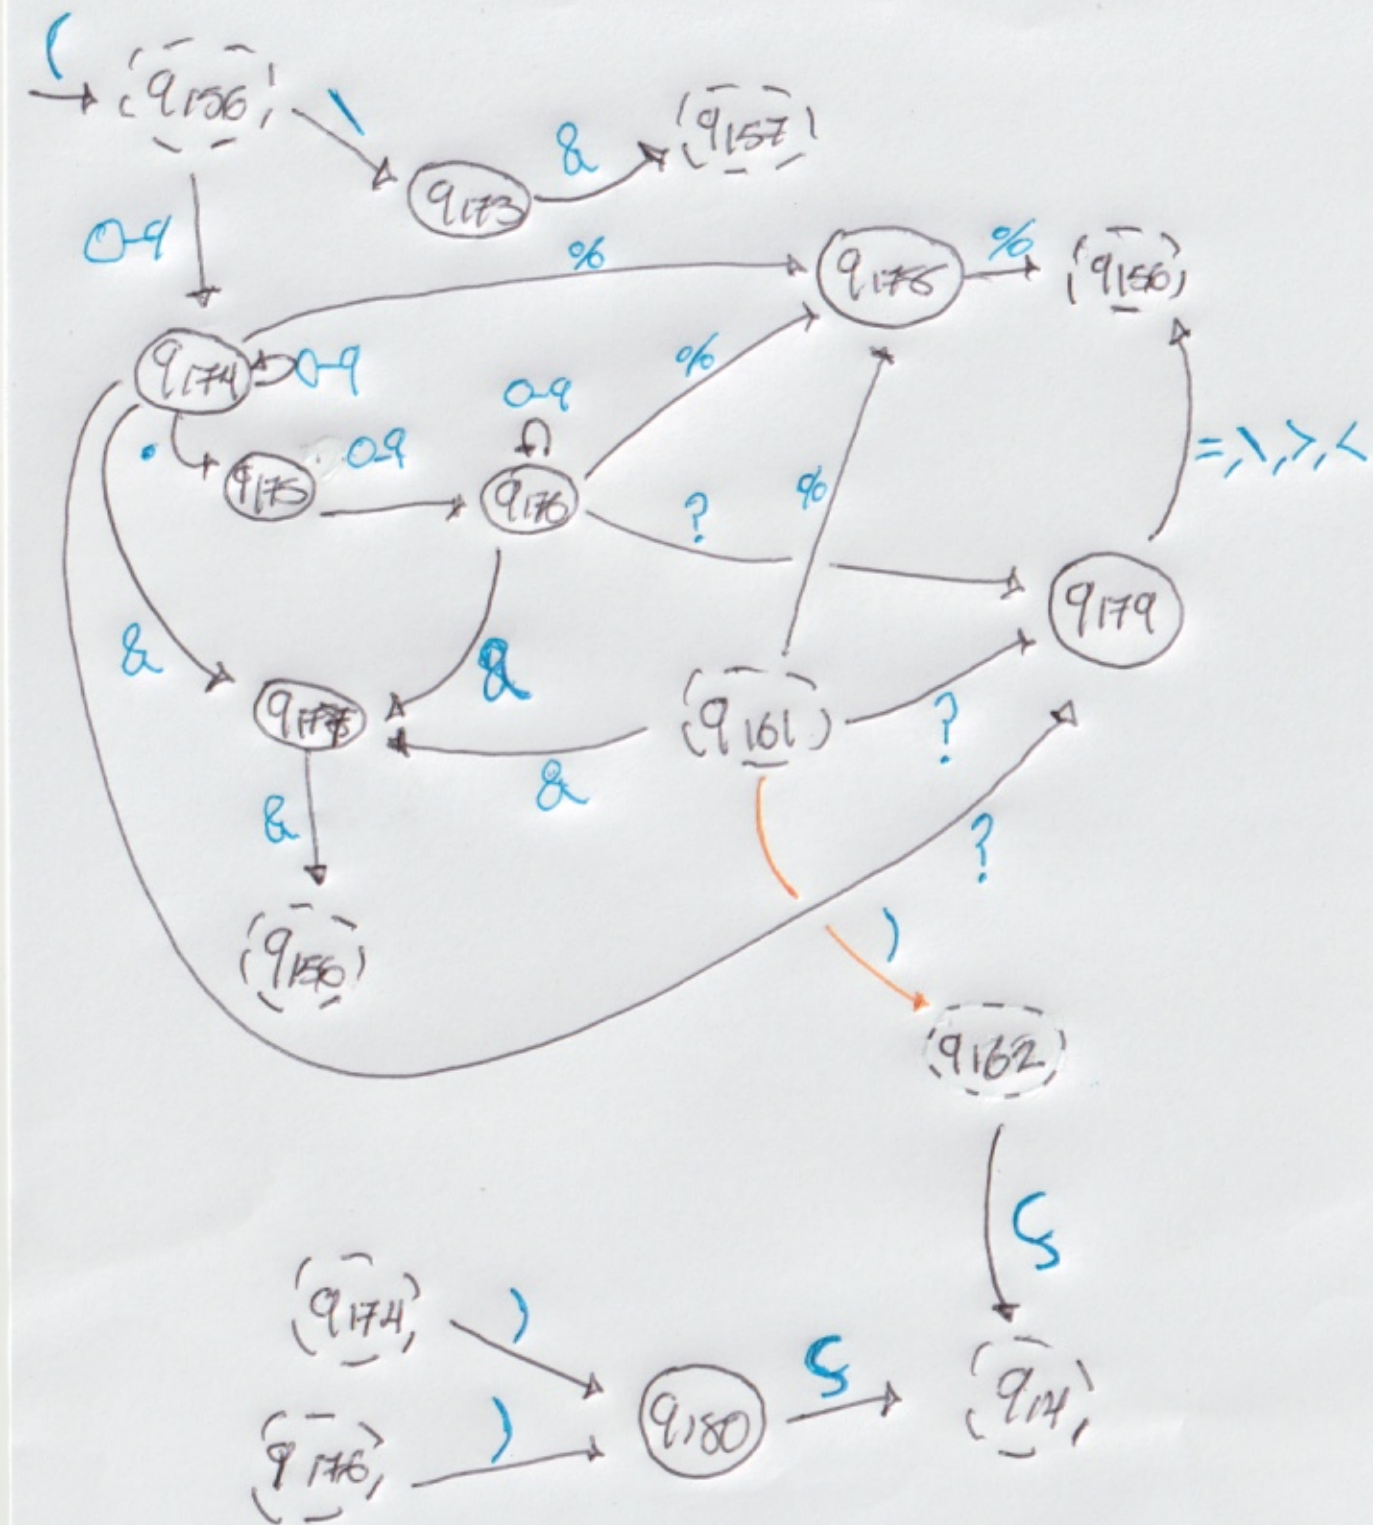 (
q156
\
q173
&
q157
0-9
%
q178
%
q156
q174
0-9
.
q175
0-9
0-9
q176
%
?
%
=,\,>,<
q179
&
&
q161
?
&
&
?
q156
)
q162
q174
)
q180
q14
q176
)